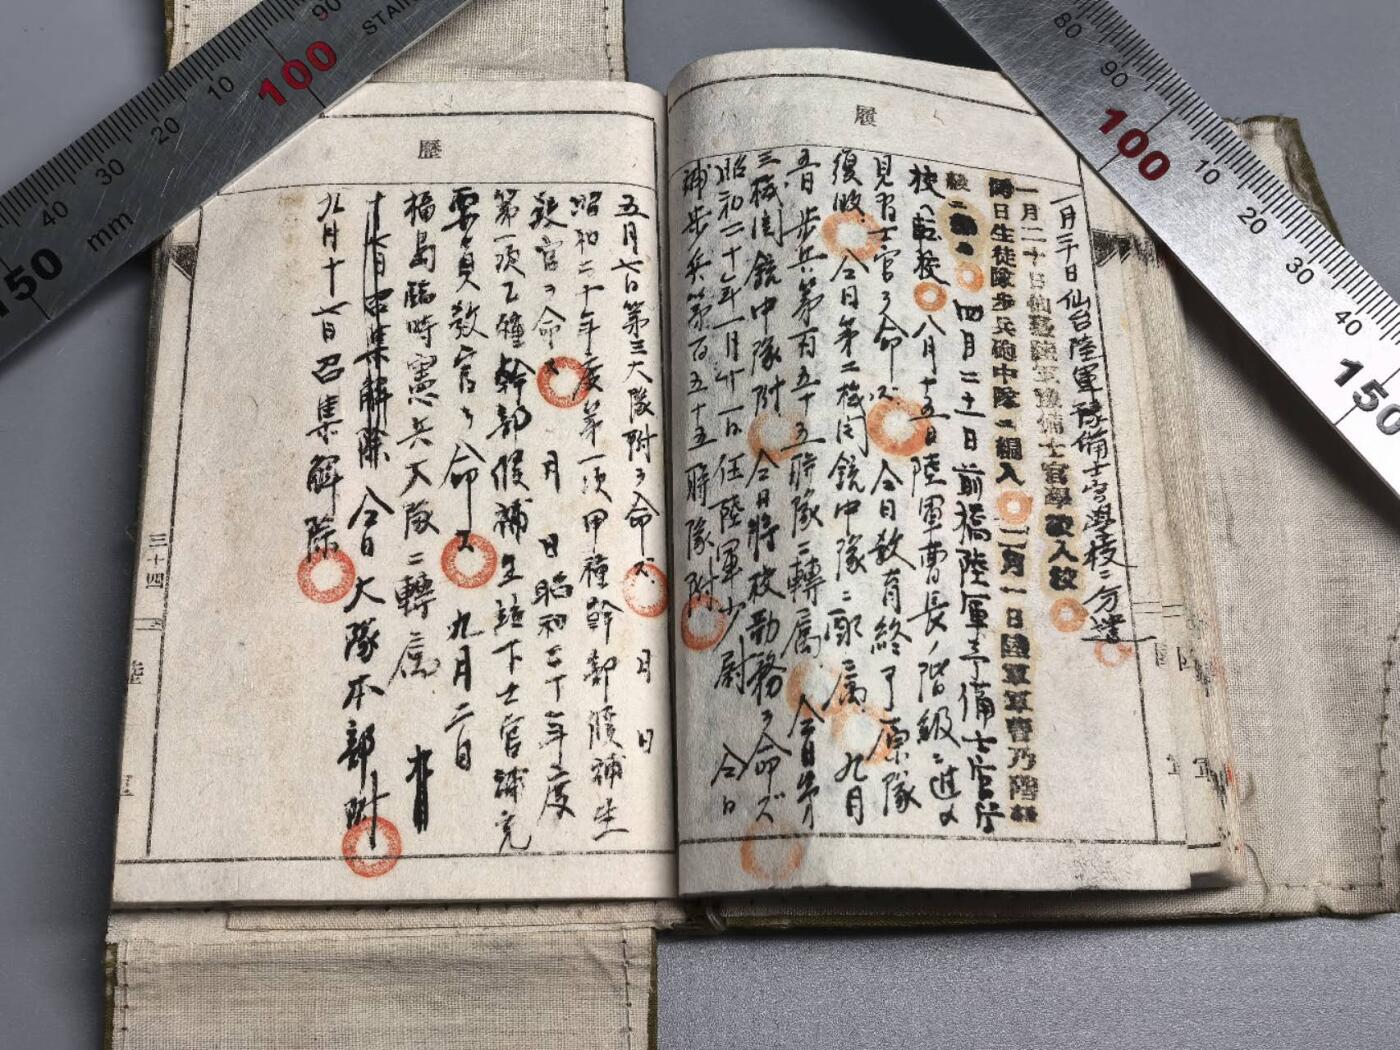 履
一月三十日仙台陸軍豫備士官學校ニ分遣
一月二十日仙臺陸軍豫備士官學校入校
同日生徒隊歩兵砲中隊ニ編入 二月一日陸軍軍曹乃階級
四月二十二日前橋陸軍予備士官学
校ヘ転校 八月十五日陸軍曹長ノ階級ニ進メ
見習士官ヲ命ズ 仝日教育終了原隊
復帰 仝日第二機関銃中隊ニ配属 九月
五日歩兵第百五十五聯隊ニ轉属 仝日第
三機関銃中隊附 仝日将校勤務ヲ命ズ
昭和二十年一月廿一日任陸軍少尉 仝日
補歩兵第百五十五聯隊附
歷
五月七日第三大隊附ヲ命ズ 月 日
昭和二十年度第一次甲種幹部候補生
教官ヲ命ズ 月 日昭和二十年度
第一次乙種幹部候補生並下士官補充
要員教官ヲ命ズ 九月二日
福島臨時憲兵大隊ニ轉属
召集解除 仝日大隊本部附
九月十七日召集解除
三十四
陸
軍
mm
STA
90
100
10
20
30
40
150
80
90
100
10
20
30
40
150